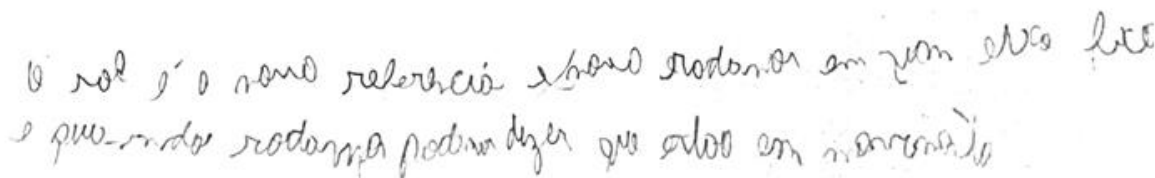 O sol é o novo referencia e novo rodamos em um eixo fixo
e quando rodamos podemos dizer que estou em movimento